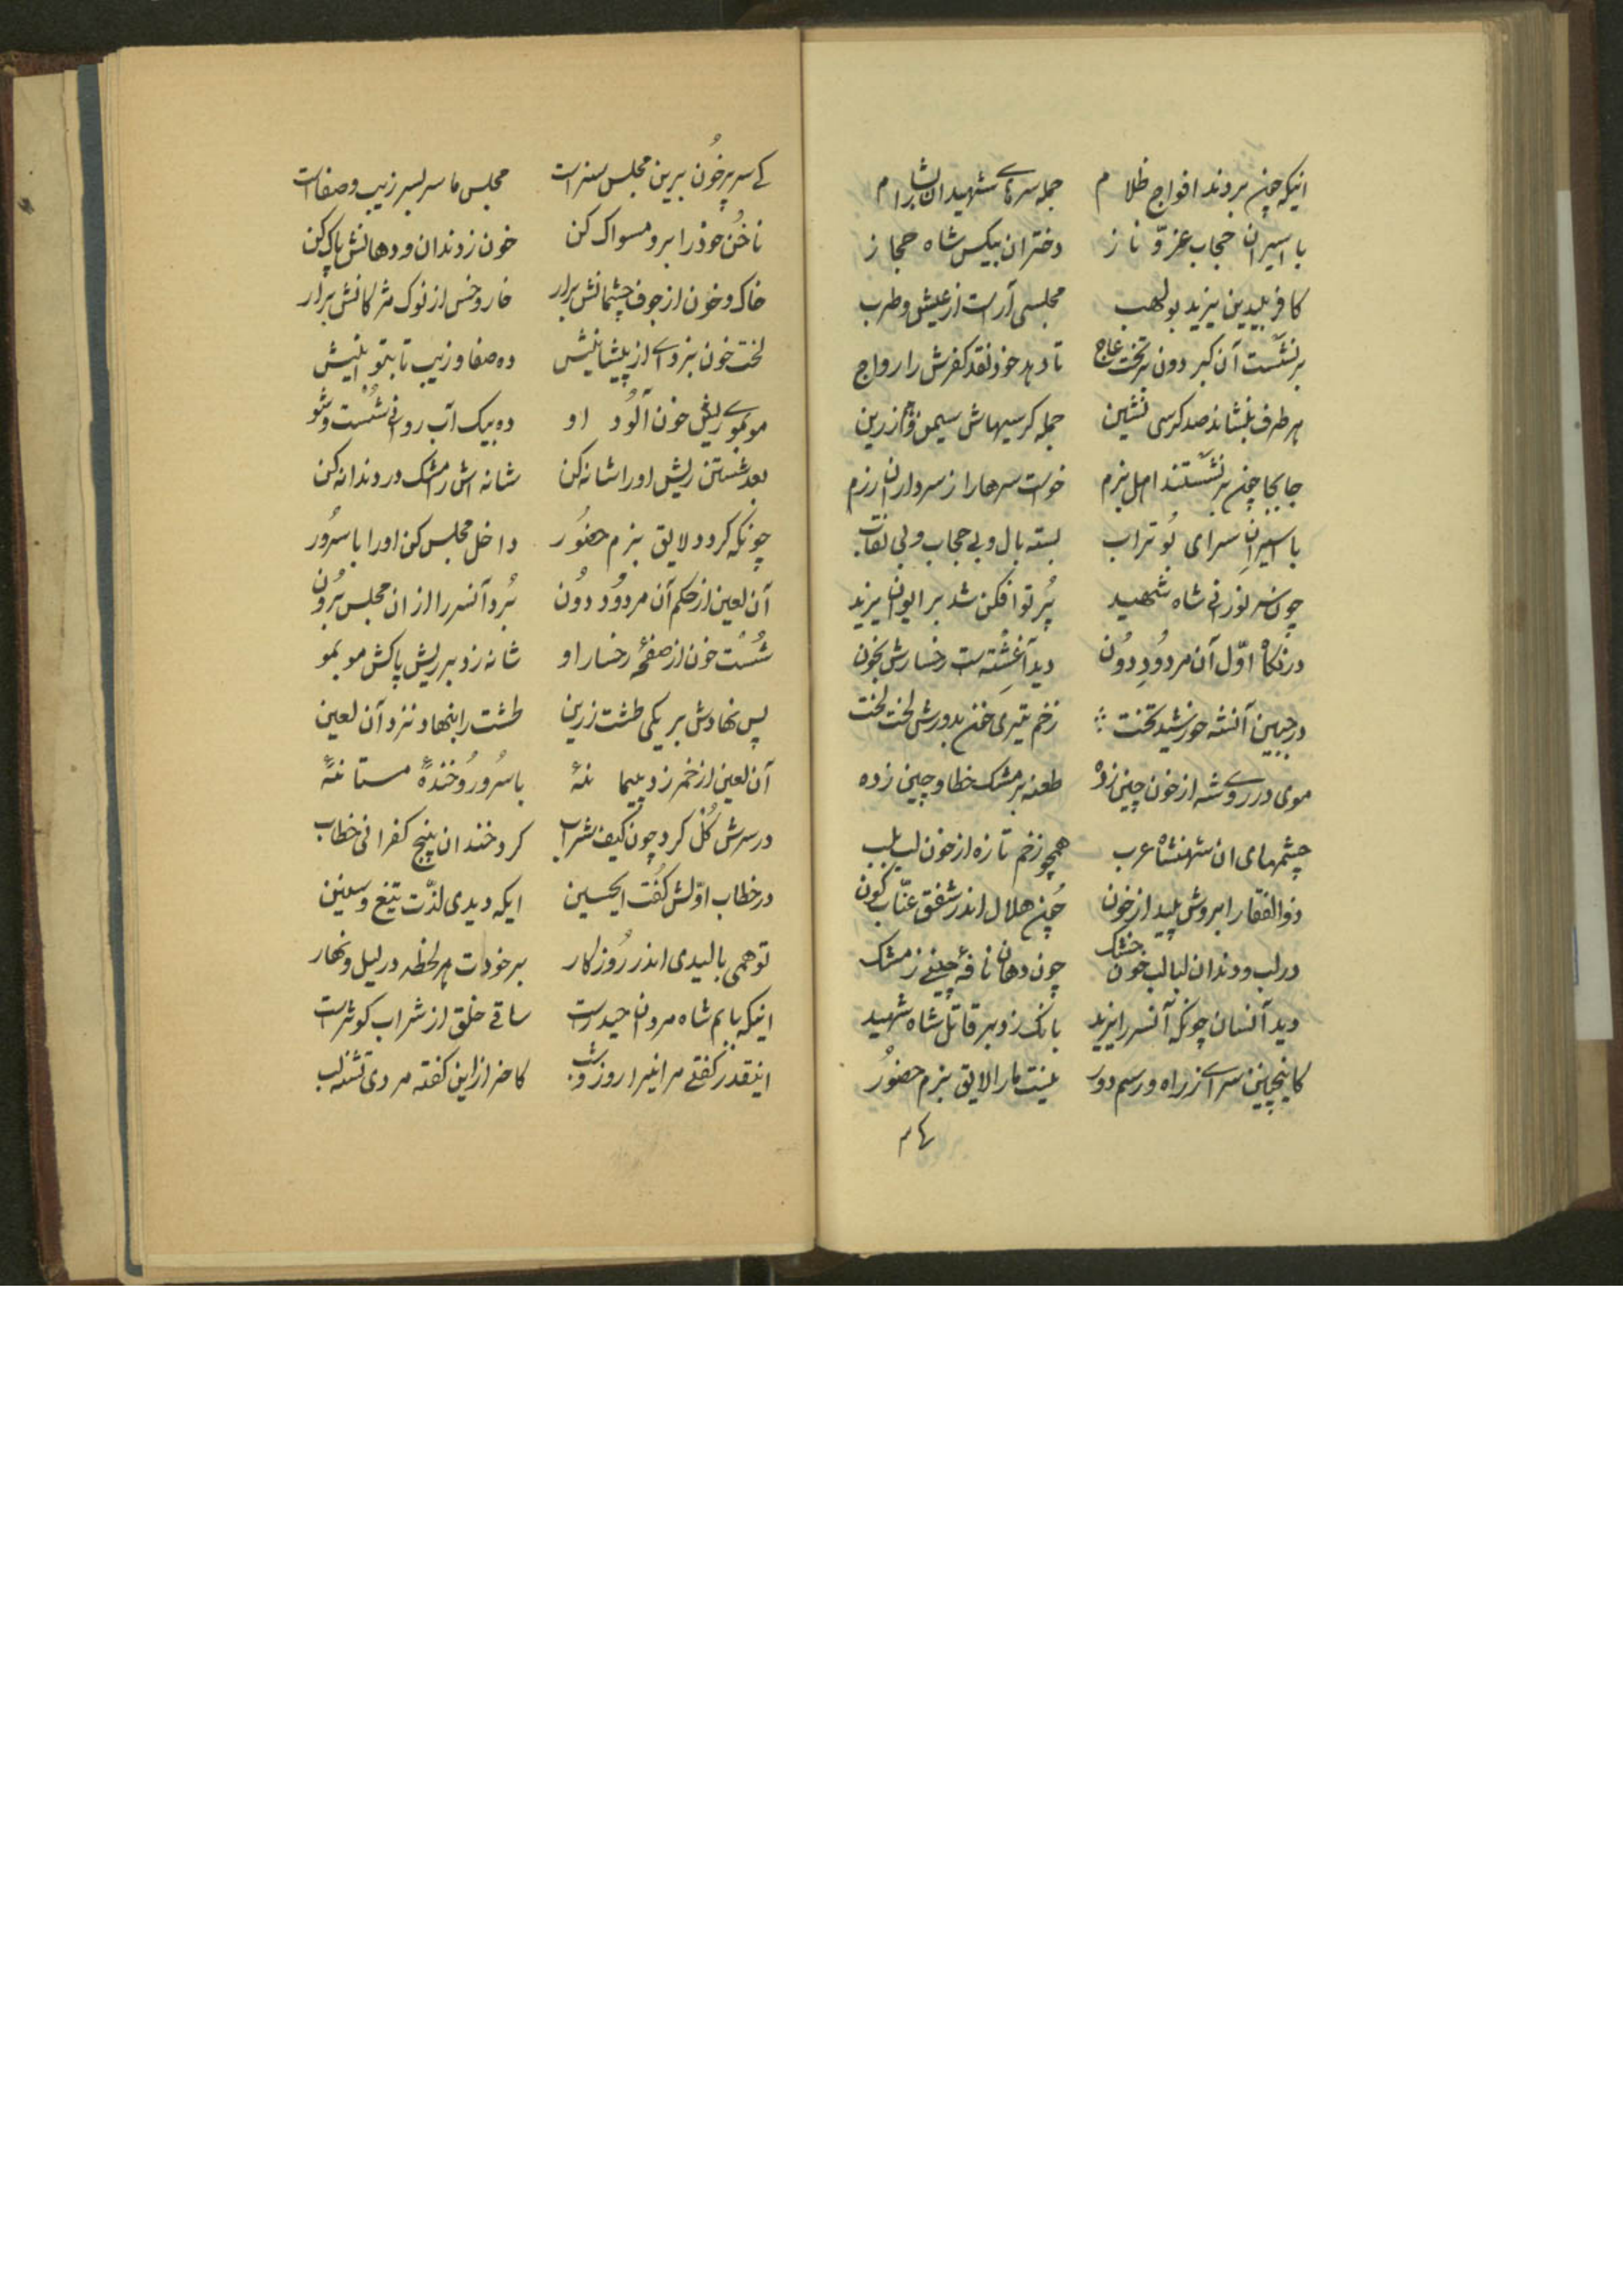 اینکه چون بردند افواج ظلام جمله سرهای شهیدان را بشام
با اسیران حجاب عزّ و ناز دختران بیکس شاه حجاز
کافر بیدین یزید بولهب مجلسی آراست از عیش و طرب
برنشست آن کبر دون بر تخت عاج تا دهد خود نقد کفرش را رواج
هر طرف بنشاند صد کرسی نشین جمله کرسیهاش سیمین و زرین
جابجا چون برنشستند اهل بزم خواست سرها را ز سرداران رزم
با اسیران سرای بُوتراب بسته بال و بی حجاب و بی نقاب
چون سر نورانی شاه شهید پُرتو افکن شد بر ایوان یزید
در نکاه اوّل آن مردُودِ دوُن دید آغشته ست رخسارش بخون
در جبین آنشه خورشید تخت زخم تیری خون بدورش لخت لخت
موی در روی شه از خون چین زده طعنه بر مشک خطا و چین زده
چشمهای ان شهنشاه عرب همچو زخم تازه از خون لب بلب
ذوالفقار ابروش پلید از خون چُون هلال اندر شفق عنّاب کون
در لب و دندان لبالب خون خشک چون دهان نافهٔ چینے ز مشک
دید آنسان چونکه آنسر را یزید بانک زد بر قاتل شاه شهید
کاینچنین سرے ز راه و رسم دور نیست ما را لایق بزم حضوُر
کے سر پرخُون برین مجلس سزاست مجلس ما سر بسر زیب و صفاست
ناخُن خود را برو مسواک کن خون ز دندان و دهانش پاک کن
خاک و خون از جوف چشمانش برار خار و خس از نوک مژکانش برار
لخت خون بزداے از پیشانیش ده صفا و زیب تابتو انیش
موبموے ریش خون آلوُد او ده بیک آب روانی شُست و شو
بعد شستن ریش او را شانه کن شانه اش ز مشک در دندانه کن
چونکه کردد لایق بزم حضُور داخل مجلس کن اورا با سُرُور
آن لعین از حکم آن مردوُد دوُن بُرد آنسر را ازان مجلس بُرُون
شُست خون از صفحهٔ رخسار او شانه زد بر ریش پاکش مو بمو
پس نهادش بر یکی طشت زرین طشت را بنهاد نزد آن لعین
آن لعین از خمر زد پیمانهٔ با سُرُور و خندهٔ مستانهٔ
در سرش کُل کرد چون کیف شراب کرد خندان پنج کفرانی خطاب
در خطاب اوّلش کُفت ایحسین ایکه دیدی لذّت تیغ و سنین
تو همی بالیدی اندر رُوزکار بر خودات هر لحظه در لیل و نهار
اینکه بابم شاه مردان حیدرست ساقے خلق از شراب کوثرست
اینقدر کفتے مر اینرا روز و شب کاخر از این کفته مردی تشنه لب